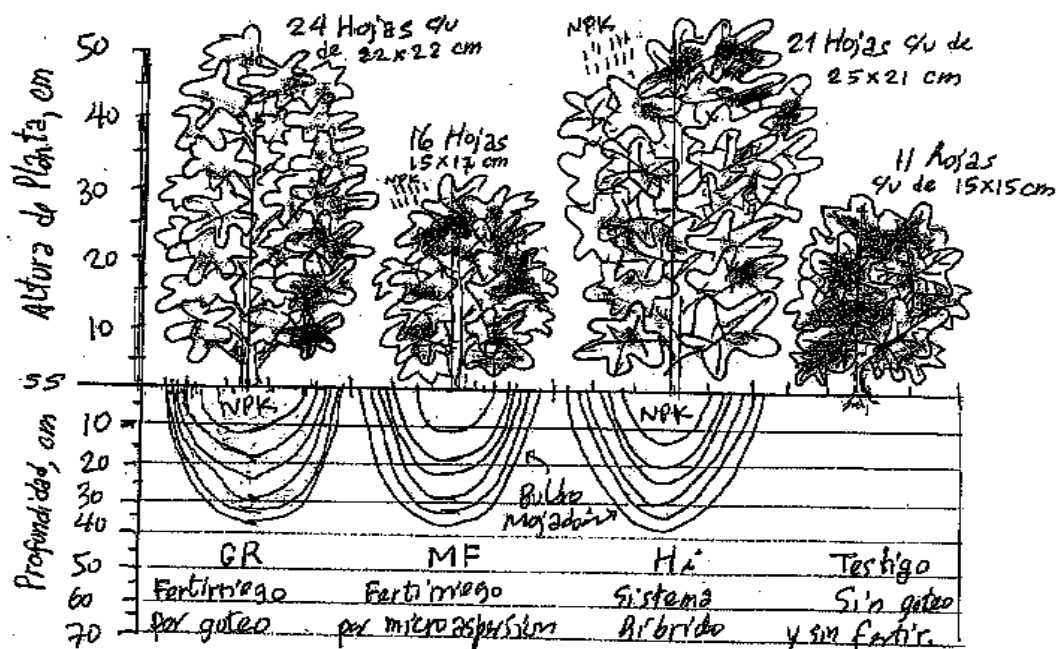 Altura de Planta, cm
50
40
30
20
10
SS
Profundidad, cm
10
20
30
40
50
60
70
24 Hojas c/u
de 22x22 cm
16 Hojas
15x17 cm
NPK
NPK
21 Hojas c/u de
25x21 cm
11 hojas
c/u de 15x15 cm
NPK
NPK
Bulbo
Mojado
GR
Fertirriego
por goteo
MF
Fertirriego
por microaspersion
Hi
Sistema
Hibrido
Testigo
Sin goteo
y sin fertir.